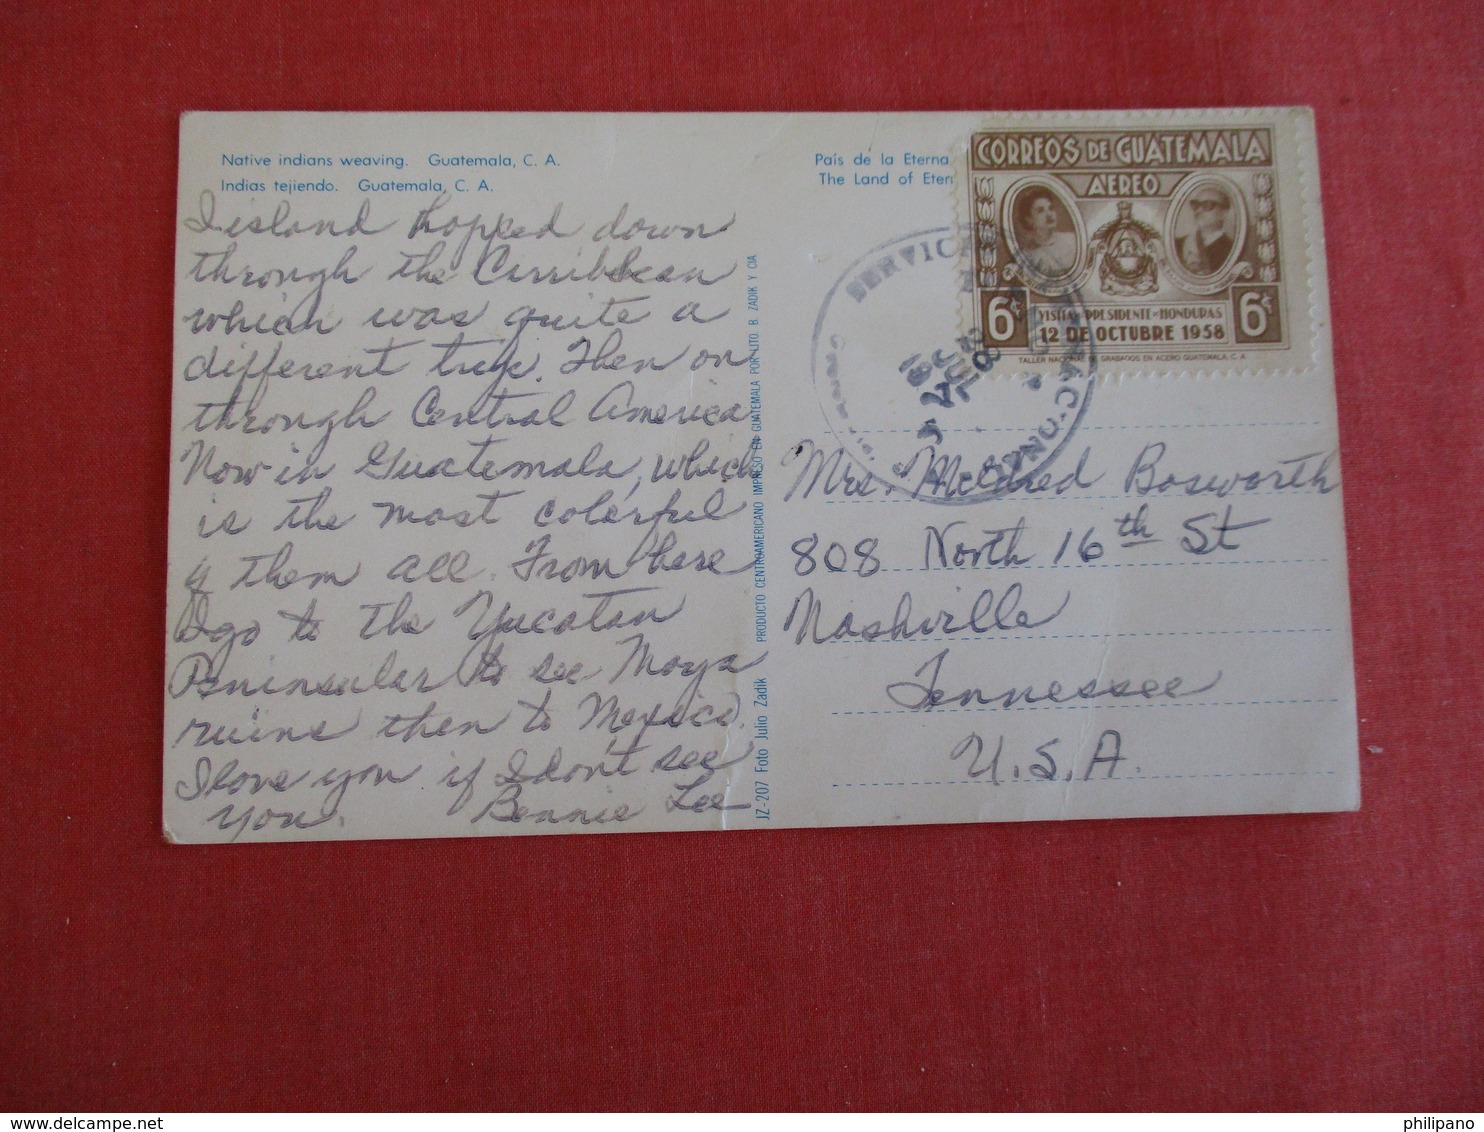 Native indians weaving. Guatemala, C. A.
Indias tejiendo. Guatemala, C. A.
I island hopped down
through the Carribbean
which was quite a
different trip. Then on
through Central America
Now in Guatemala, which
is the most colorful
of them all. From here
I go to the Yucatan
Peninsular to see Maya
ruins then to Mexico.
I love you if I don't see
you. Bennie Lee
JZ-207 Foto Julio Zadik PRODUCTO CENTROAMERICANO IMPRESO EN GUATEMALA POR LITO. B. ZADIK Y CIA
País de la Eterna
The Land of Eter
CORREOS DE GUATEMALA
AEREO
6¢ 6¢
VISITA PRESIDENTE HONDURAS
12 DE OCTUBRE 1958
TALLER NACIONAL DE GRABADOS EN ACERO GUATEMALA, C. A.
SERVICIO
Mrs. Mildred Bosworth
808 North 16th St
Nashville
Tennessee
U.S.A.
philipano